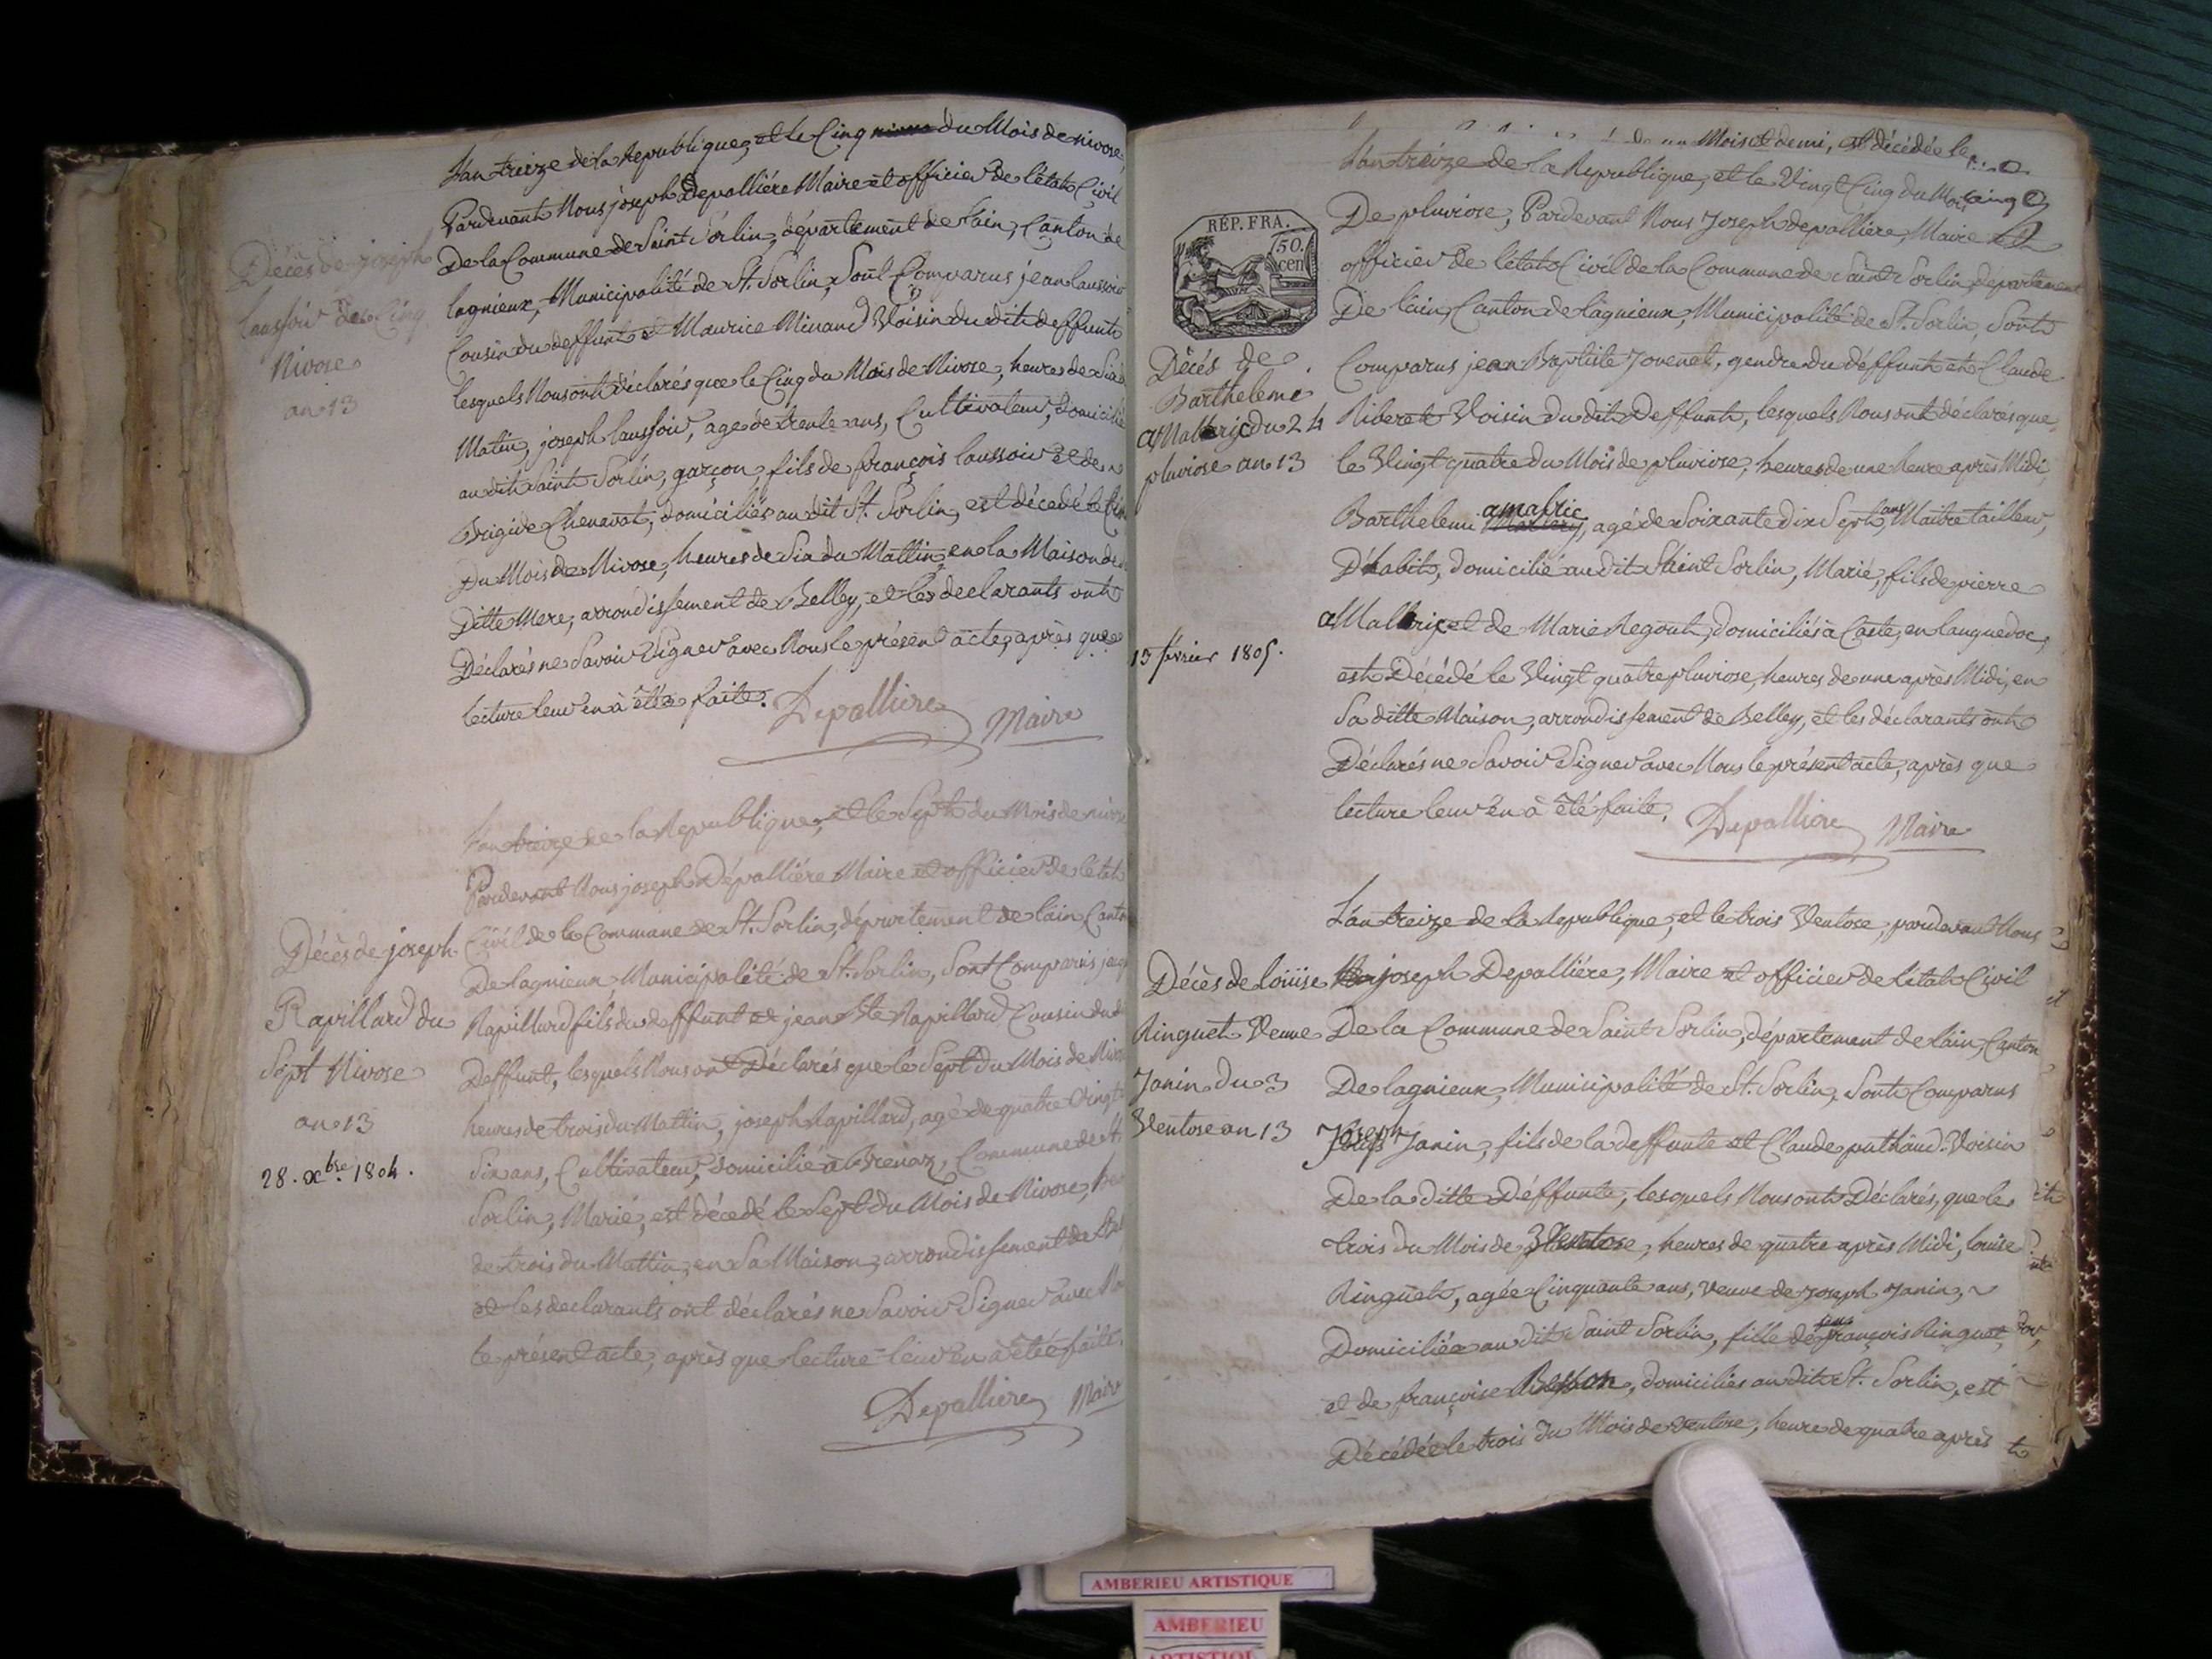 L'an treize de la Republique, et le Cinq du Mois de nivose,
Pardevant Nous joseph Depalliére Maire et officier de l'état Civil
De la Commune de Saint Sorlin, département de l'ain, Canton de
lagnieux, Municipalité de St. Sorlin, Sont Comparus jean laussoir
Cousin du deffunt et Maurice Minand Voisin du dit deffunt
lesquels Nous ont déclarés que le Cinq du Mois de Nivose, heures de Six d
Matin, joseph laussoir, age de trente ans, Cultivateur, domicilié
au dit Saint Sorlin, garçon, fils de françois laussoir et de
Brigide Chenavat, domiciliés au dit St. Sorlin, est décedé le Cin
Du Mois de Nivose, heures de Six du Mattin, en la Maison de
Ditte Mere, arrondissement de Belley, et les declarants ont
Déclarés ne Savoir Signer avec Nous le présent acte, après que
lecture leur en à étée faite.
Depalliere Maire
Décès de joseph
laussoir du Cinq
Nivose
an 13
L'an treize de la Republique, et le Sept du Mois de nivose
Pardevant Nous joseph Dépalliére Maire et officier de l'état
Civil de la Commune de St. Sorlin, département de l'ain, Canto
De lagnieux Municipalité de St. Sorlin, Sont Comparus jacq
Rapillard fils du deffunt et jean Bte Rapillard Cousin du d
Deffunt, lesquels Nous ont Déclarés que le Sept du Mois de Nivo
heures de trois du Mattin, joseph Rapillard, agé de quatre Vingt
Six ans, Cultivateur, domicilié à Brenaz, Commune de St.
Sorlin, Marié, est décedé le Sept du Mois de Nivose, heu
de trois du Mattin, en Sa Maison, arrondissement de Bel
et les declarants ont déclarés ne Savoir Signer avec No
le présent acte, après que lecture leur en à étée faite.
Depalliere Maire
Décès de joseph
Rapillard du
Sept Nivose
an 13
28. xbre. 1804.
Mois et demi, est décédée le
L'an treize de la Republique, et le Vingt Cinq du Mois
De pluviose, Pardevant Nous Joseph depalliere, Maire et
officier de l'état Civil de la Commune de Saint Sorlin, département
De l'ain, Canton de lagnieux, Municipalité de St. Sorlin, Sont
Comparus jean Baptiste Jovenet, gendre du déffunt et Claude
Riberet Voisin du dit Deffunt, lesquels Nous ont déclarés que
le Vingt quatre du Mois de pluviose, heures de une heure après Midi,
Barthelemi amalric, agé de Soixante dix Sept ans, Maitre tailleur,
D'habits, domicilié au dit Saint Sorlin, Marié, fils de pierre
aMalric et de Marie Regout, domiciliés à Caste, en languedoc,
est Décédé le Vingt quatre pluviose, heures de une après Midi, en
Sa ditte Maison, arrondissement de Belley, et les déclarants ont
Déclarés ne Savoir Signer avec Nous le présent acte, après que
lecture leur en à été faite.
Depalliere Maire
RÉP. FRA.
50.
cen
Décés de
Bartheleme
aMalric du 24
pluviose an 13
13 février 1805.
L'an treize de la Republique, et le trois Ventose, pardevant Nous
joseph Depalliére, Maire et officier de l'état Civil
De la Commune de Saint Sorlin, département de l'ain, Canton
De lagnieux, Municipalité de St. Sorlin, Sont Comparus
Joseph Janin, fils de la deffunte et Claude puthaud Voisin
De la ditte Déffunte, lesquels Nous ont Déclarés, que le
trois du Mois de Ventose, heures de quatre après Midi, louise
Ringuet, agée Cinquante ans, veuve de Joseph Janin,
Domiciliée au dit Saint Sorlin, fille de feu françois Ringuet,
et de françoise Besson, domiciliés au dit St. Sorlin, est
Décédée le trois du Mois de ventose, heure de quatre après
Décès de louise
Ringuet Veuve
Janin du 3
Ventose an 13
AMBERIEU ARTISTIQUE
AMBERIEU
ARTISTIQU